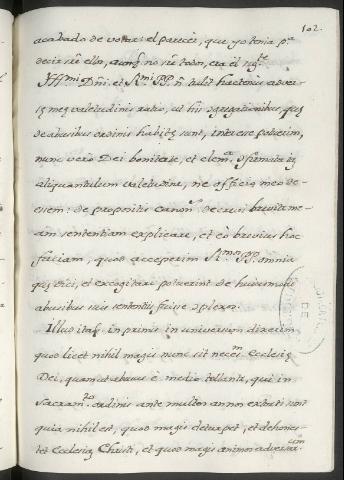 102.
acabado de votar: el parecer, que yo tenia p.ª
decir sre ello, aunq̃ no sre todos, era el sig.te
Ill.mi Dni. et R.mi PP. ñ tulit hactenus adver-
sæ meæ valetudinis ratio, ut his cõgregationibus, quæ
de abusibus ordinis habitæ sunt, interesse potuerim,
nunc vero Dei bonitate, et clem.ª cõfirmata iã
aliquantulum valetudine, ne officio meo de-
essem: de propositis canon. decrevi breviter me-
am sententiam explicare, et eò brevius hoc
faciam, quod acceperim R.mos PP. omnia
quæ dici, et excogitari potuerint de huiusmodi
abusibus suis sententiis fuisse cõplexos.
Illud itaq̃ in primis in universum dixerim
quod licet nihil magis nunc sit neces.m Ecclesiæ
Dei, quam ut abusus è medio tollantur, qui in
Sacram.to ordinis ante multos annos extiti sunt
quia nihil est, quod magis deturpet, et dehones-
tet Ecclesiam Christi, et quod magis animos adversar.